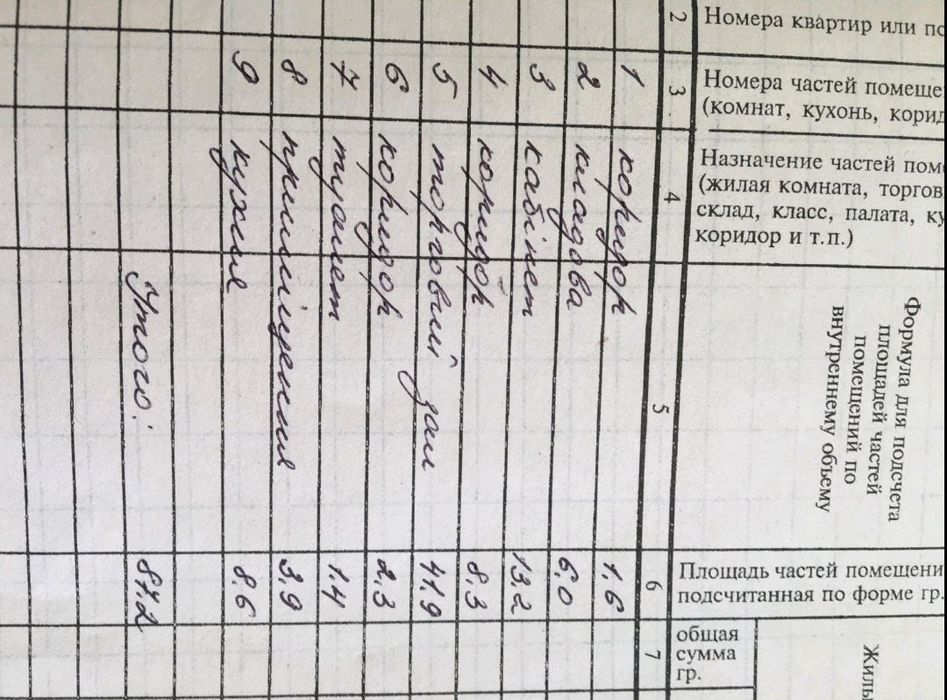 2 Номера квартир или
3 Номера частей
(комнат, кухонь,
4 Назначение частей
(жилая комната,
склад, класс, палата,
коридор и т.п.)
5 Формула для подсчета
площадей частей
помещений по
внутреннему объему
6 Площадь частей
подсчитанная по форме гр.
7 общая
сумма
гр.
1 коридор 1,6
2 кладова 6,0
3 кабінет 13,2
4 коридор 8,3
5 торговий зал 41,9
6 коридор 2,3
7 туалет 1,4
8 приміщення 3,9
9 кухня 8,6
Итого: 87,2